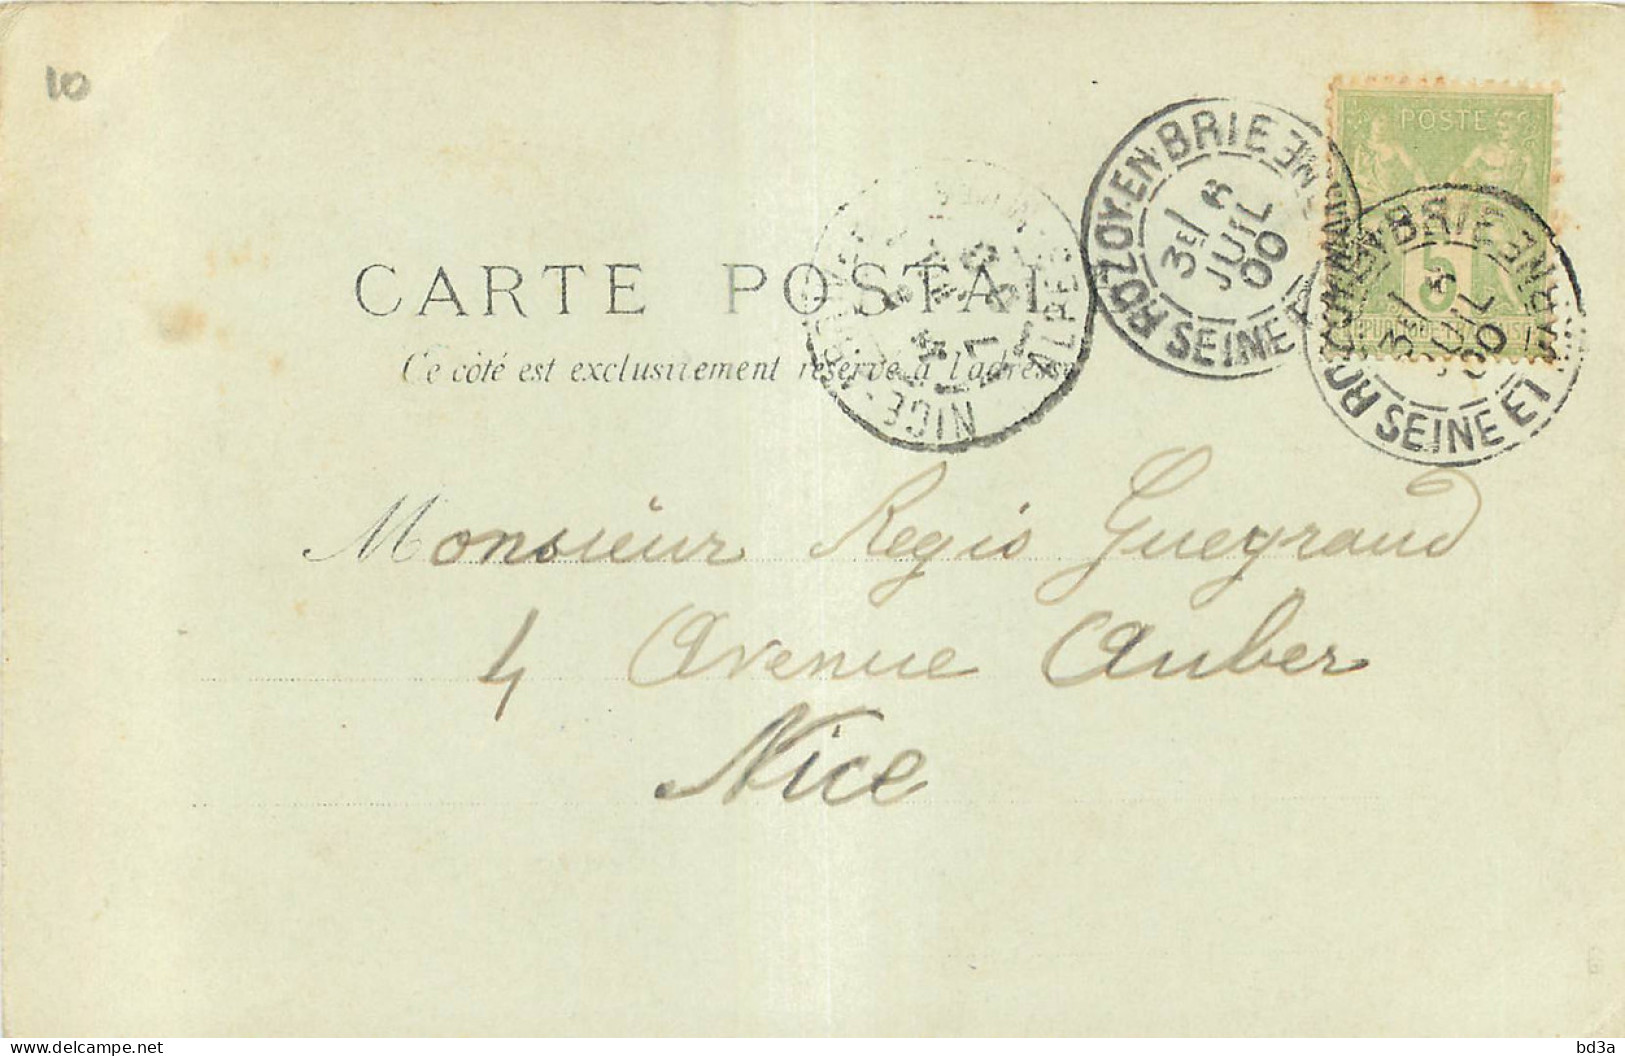 10
POSTE
5
ROZOY-EN-BRIE
3E/
6
JUIL
00
SEINE ET MARNE
ROZOY-EN-BRIE
3E/
6
JUIL
00
SEINE ET MARNE
CARTE POSTALE
Ce côté est exclusivement réservé à l'adresse
NICE
ALPES
Monsieur Regis Gueyraud
4 Avenue Auber
Nice
www.delcampe.net
bd3a